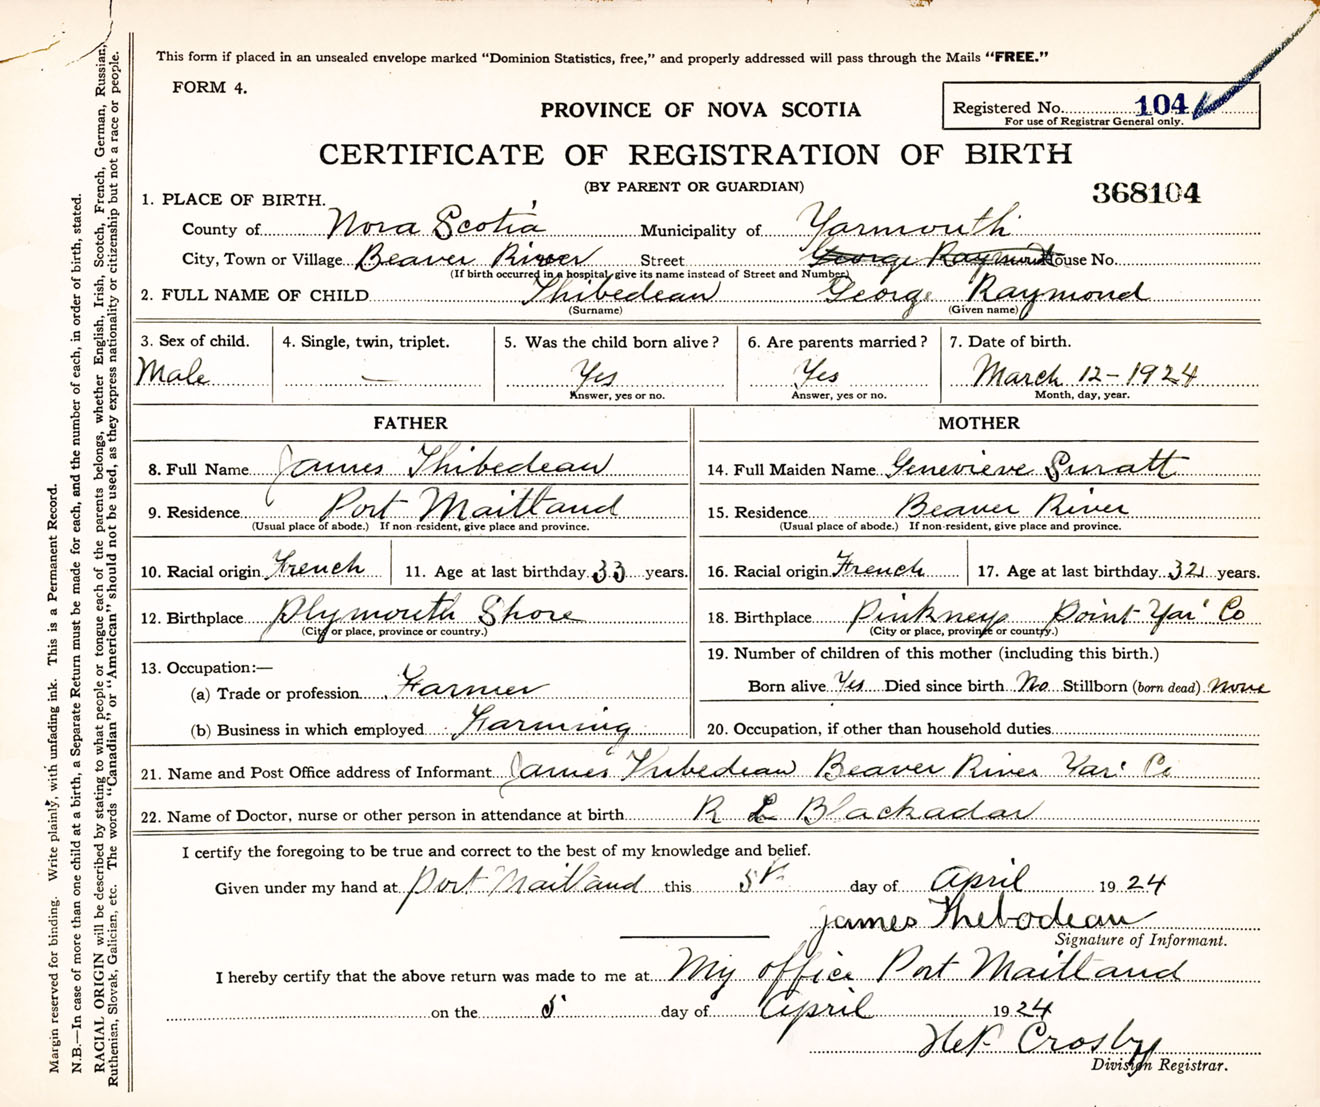 This form if placed in an unsealed envelope marked “Dominion Statistics, free,” and properly addressed will pass through the Mails “FREE.”
FORM 4.
Registered No. 104
For use of Registrar General only.
PROVINCE OF NOVA SCOTIA
CERTIFICATE OF REGISTRATION OF BIRTH
(BY PARENT OR GUARDIAN)
368104
1. PLACE OF BIRTH.
County of Nova Scotia Municipality of Yarmouth
City, Town or Village Beaver River Street George Raymond House No.
(If birth occurred in a hospital, give its name instead of Street and Number)
2. FULL NAME OF CHILD Thibedeau George Raymond
(Surname) (Given name)
3. Sex of child. 4. Single, twin, triplet. 5. Was the child born alive? 6. Are parents married? 7. Date of birth.
Male — Yes Yes March 12-1924
Answer, yes or no. Answer, yes or no. Month, day, year.
FATHER MOTHER
8. Full Name James Thibedeau 14. Full Maiden Name Genevieve Suratt
9. Residence Port Maitland 15. Residence Beaver River
(Usual place of abode.) If non resident, give place and province. (Usual place of abode.) If non-resident, give place and province.
10. Racial origin French 11. Age at last birthday 33 years. 16. Racial origin French 17. Age at last birthday 32 years.
12. Birthplace Plymouth Shore 18. Birthplace Pinkneys Point Yar' Co
(City or place, province or country.) (City or place, province or country.)
13. Occupation:— 19. Number of children of this mother (including this birth.)
(a) Trade or profession Farmer Born alive Yes Died since birth No Stillborn (born dead) none
(b) Business in which employed Farming 20. Occupation, if other than household duties
21. Name and Post Office address of Informant James Thibedeau Beaver River Yar' Co
22. Name of Doctor, nurse or other person in attendance at birth R L Blackadar
I certify the foregoing to be true and correct to the best of my knowledge and belief.
Given under my hand at Port Maitland this 5th day of April 1924
James Thebodeau
Signature of Informant.
I hereby certify that the above return was made to me at My office Port Maitland
on the 5 day of April 1924
Crosby
Division Registrar.
Margin reserved for binding. Write plainly, with unfading ink. This is a Permanent Record.
N.B.—In case of more than one child at a birth, a Separate Return must be made for each, and the number of each, in order of birth, stated.
RACIAL ORIGIN will be described by stating to what people or tongue each of the parents belongs, whether English, Irish, Scotch, French, German, Russian,
Ruthenian, Slovak, Galician, etc. The words “Canadian” or “American” should not be used, as they express nationality or citizenship but not a race or people.